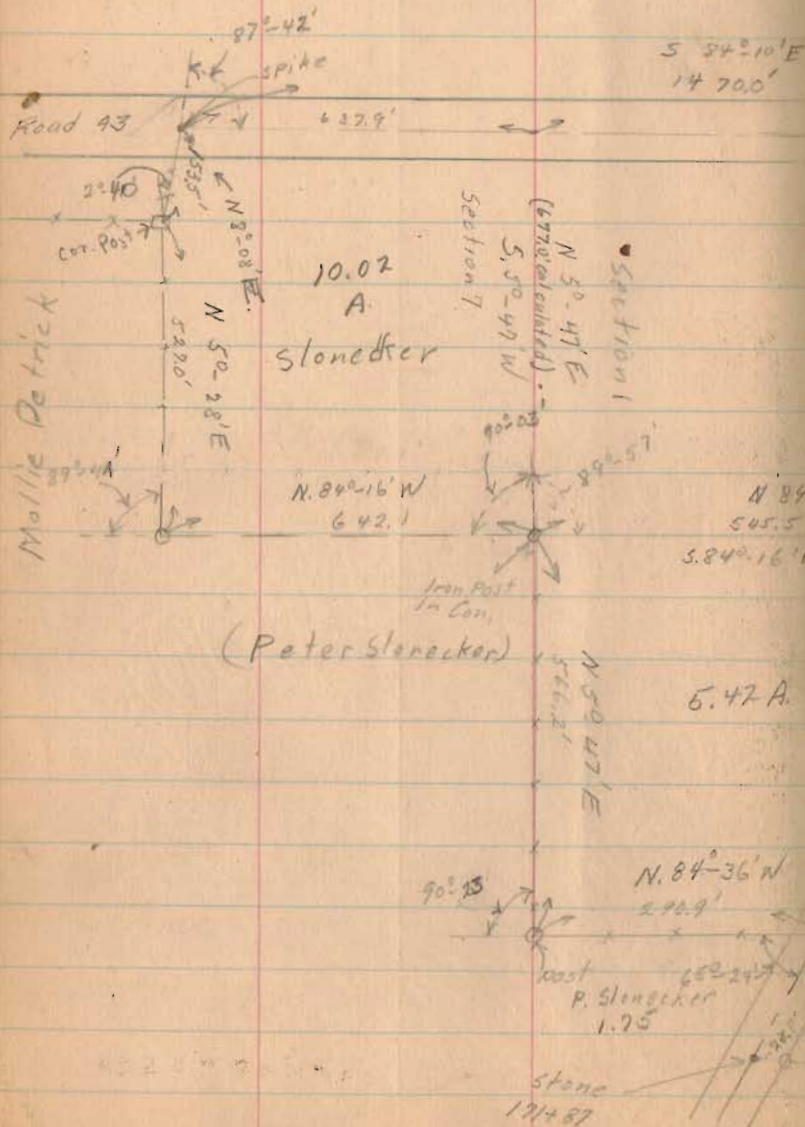 87°-42'
spike
S 84°-10' E
1470.0'
Road 43
637.9'
2°40'
153.5'
N 8°-08' E.
Cor. Post
10.02
A.
Slonecker
N 5°-28' E
522.0'
Mollie Detrick
Section 7
S, 5°-47' W
(677.0' calculated).-
N 5°-47' E
Section 1
90°-03'
89°-57'
89°-44'
N. 84°-16' W
642.1
N 84
545.5
S. 84°-16'
Iron Post
In Con,
(Peter Slonecker)
N 5° 47' E
566.2'
5.42 A.
90°-23'
N. 84°-36' W
290.9'
post
65°-24'
P. Slonecker
1.75
Stone
171+87